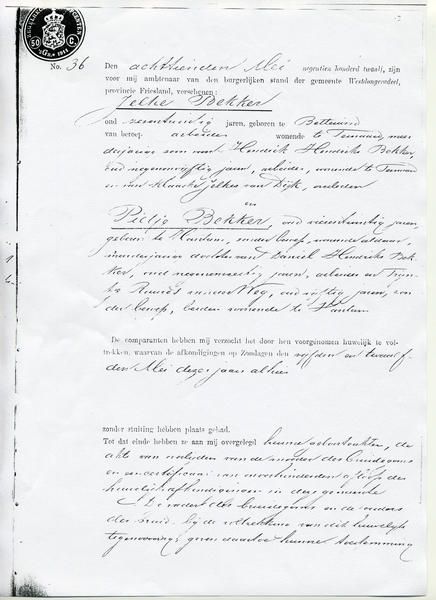 50 C.
No. 36 Den achttienden Mei negentien honderd twaalf, zijn
voor mij ambtenaar van den burgerlijken stand der gemeente Westdongeradeel,
provincie Friesland, verschenen:
Jelke Bekker
oud jaren, geboren te Betterwird
van beroep arbeider wonende te Ternaard, meer
derjarige zoon van Hendrik Hendriks Bekker,
oud negenenvijftig jaren, arbeider, wonende te Ternaard
en van Klaaske Jelkes van Dijk, overleden
en
Pietje Bekker, oud vierentwintig jaren,
geboren te Hantum, zonder beroep, wonende aldaar,
minderjarige dochter van Daniel Hendriks Bek
ker, oud negenenveertig jaren, arbeider en Trijn
tje Ruurds van der Weg, oud vijftig jaren, zon
der beroep, beiden wonende te Hantum
De comparanten hebben mij verzocht het door hen voorgenomen huwelijk te vol-
trekken, waarvan de afkondigingen op Zondagen den vijfden en twaalf
den Mei dezes jaars alhier
zonder stuiting hebben plaats gehad.
Tot dat einde hebben ze aan mij overgelegd hunne geboorteakten, de
akte van overlijden van de moeder des bruidegoms
en een certificaat van onverhinderden afloop der
huwelijksafkondigingen in deze gemeente
De vader des bruidegoms en de ouders
der bruid, bij de voltrekking van dit huwelijk
tegenwoordig, geven daartoe hunne toestemming